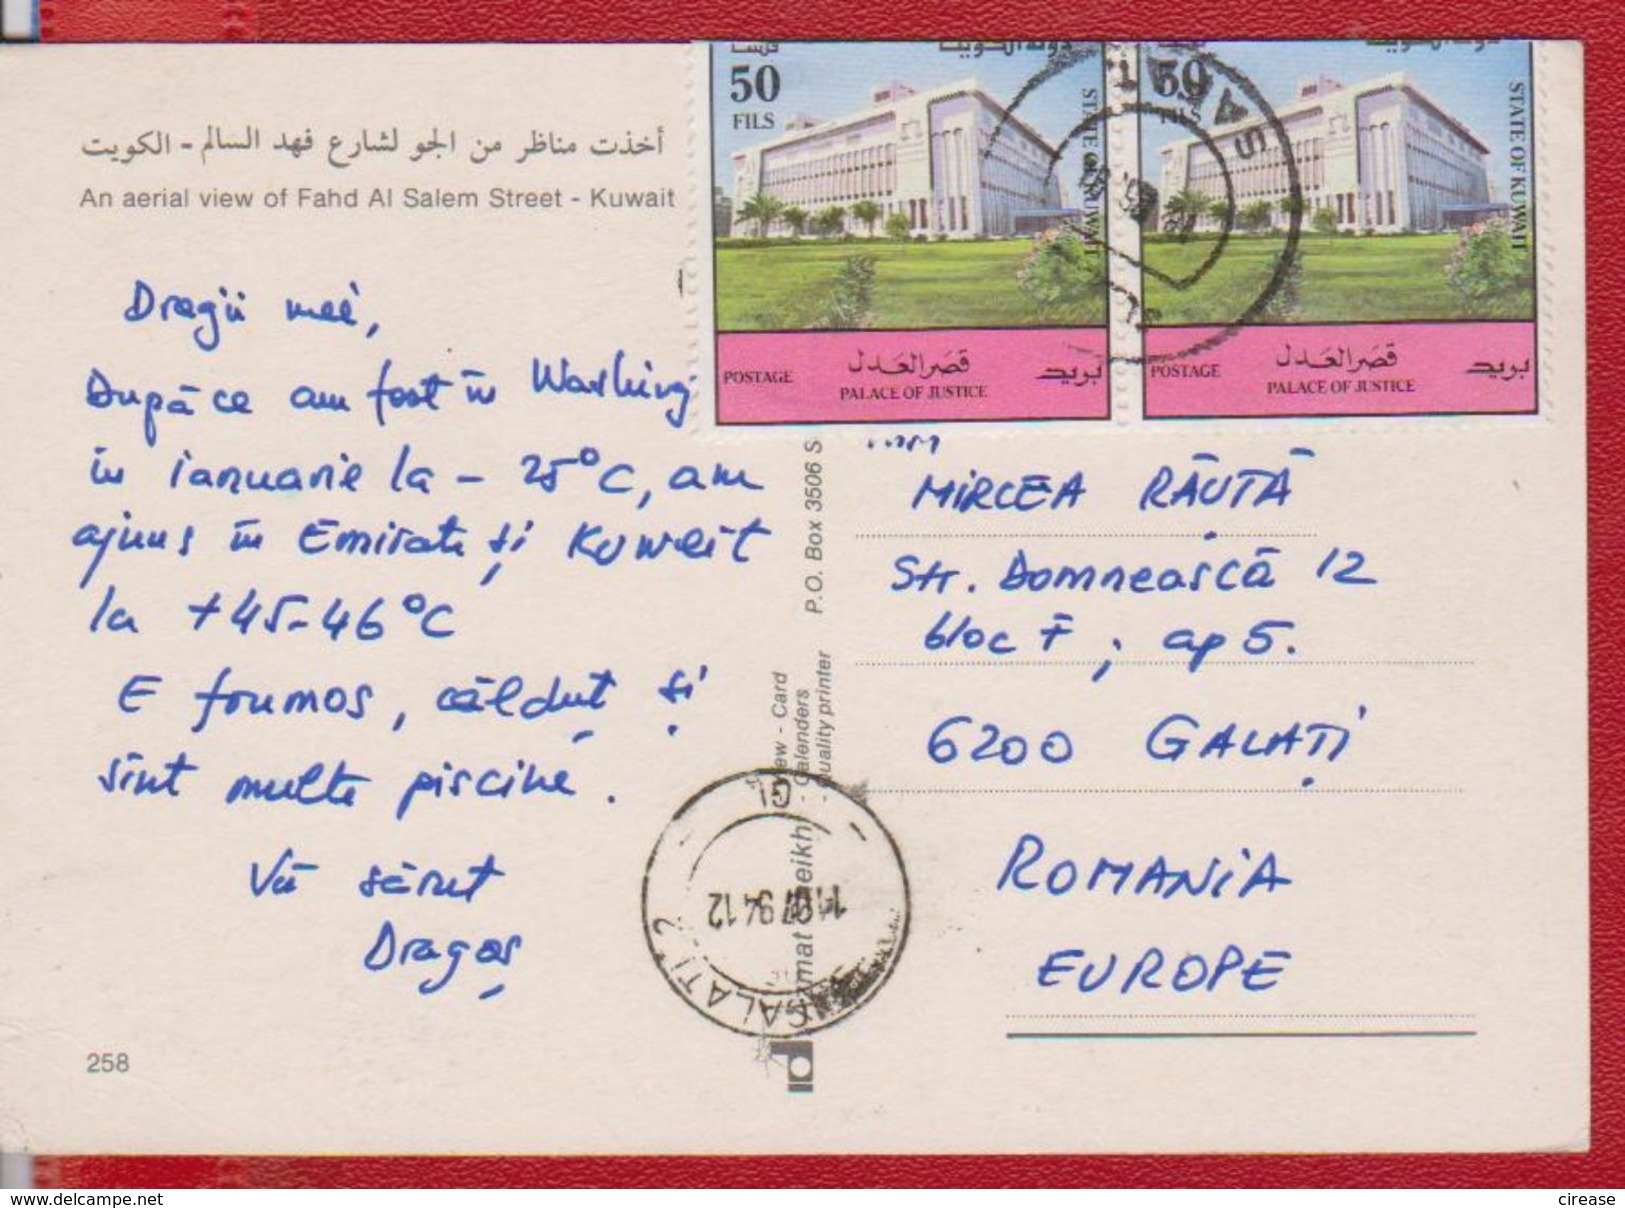 أخذت مناظر من الجو لشارع فهد السالم - الكويت
An aerial view of Fahd Al Salem Street - Kuwait
50
FILS
STATE OF KUWAIT
POSTAGE
قصر العدل
PALACE OF JUSTICE
بريد
50
FILS
STATE OF KUWAIT
POSTAGE
قصر العدل
PALACE OF JUSTICE
بريد
SAFAT
Dragii mei,
După ce am fost în Washing
în ianuarie la - 25°C, am
ajuns în Emirate și Kuweit
la +45-46°C
E frumos, călduț și
sînt multe piscine.
Vă sărut
Dragoș
MIRCEA RĂUTĂ
Str. Domnească 12
bloc F, ap 5.
6200 GALAȚI
ROMANIA
EUROPE
P.O. Box 3506 S
View - Card
Calenders
Quality printer
GALATI 2
GL
11 07 94 12
258
www.delcampe.net
cirease